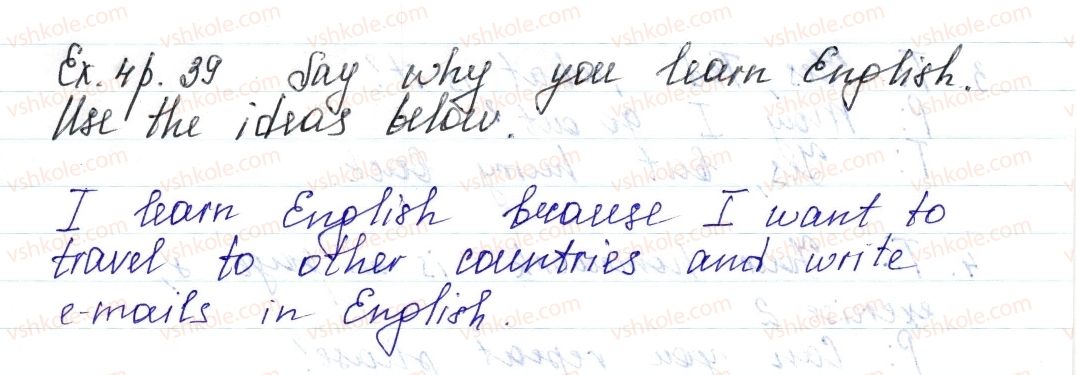 Ex. 4 p. 39 Say why you learn English.
Use the ideas below.
I learn English because I want to
travel to other countries and write
e-mails in English.